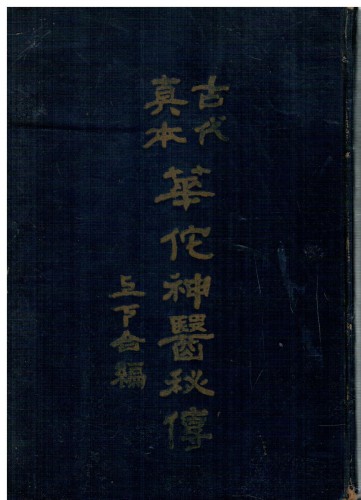 古代
真本
華佗神醫秘傳
上下合編